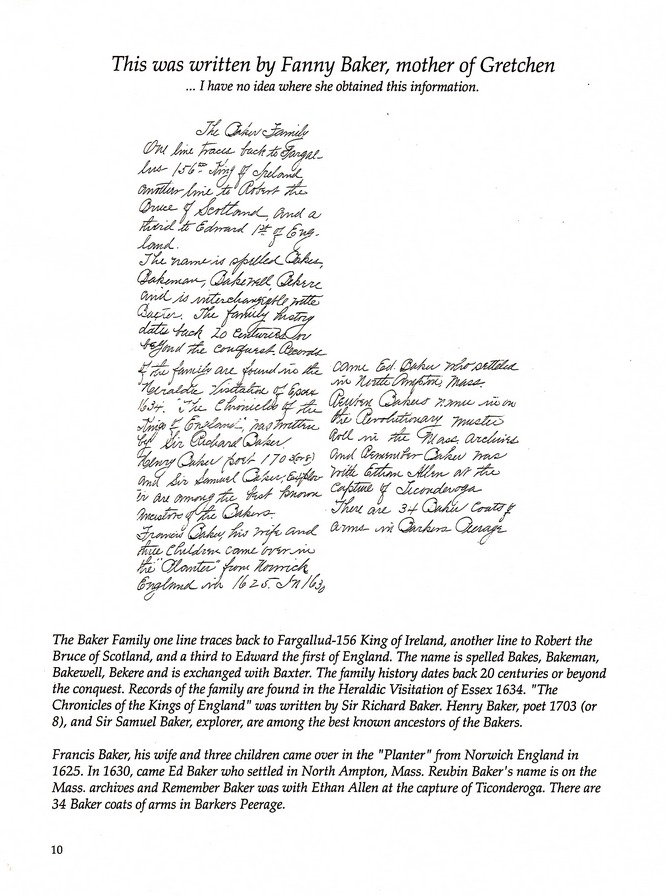 This was written by Fanny Baker, mother of Gretchen
... I have no idea where she obtained this information.
The Baker Family
One line traces back to Fargal-
lus 156th King of Ireland
another line to Robert the
Bruce of Scotland, and a
third to Edward 1st of Eng-
land.
The name is spelled Bakes,
Bakeman, Bakewell, Bekere
and is interchangible with
Baxter. The family history
dates back 20 centuries or
beyond the conquest. Records
of the family are found in the
Heraldic Visitation of Essex
1634. "The Chronicles of the
Kings of England," was written
by Sir Richard Baker
Henry Baker (poet 1703 or 8)
and Sir Samuel Baker, Explor
er are among the best known
ancestors of the Bakers.
Francis Baker, his wife and
three children came over in
the "Planter" from Norwich
England in 1625. In 1630
came Ed. Baker who settled
in North Ampton, Mass.
Reuben Bakers name is on
the Revolutionary muster
roll in the Mass. archives
and Remember Baker was
with Ethan Allen at the
capture of Ticonderoga
There are 34 Baker Coats of
arms in Barkers Peerage
The Baker Family one line traces back to Fargallud-156 King of Ireland, another line to Robert the
Bruce of Scotland, and a third to Edward the first of England. The name is spelled Bakes, Bakeman,
Bakewell, Bekere and is exchanged with Baxter. The family history dates back 20 centuries or beyond
the conquest. Records of the family are found in the Heraldic Visitation of Essex 1634. "The
Chronicles of the Kings of England" was written by Sir Richard Baker. Henry Baker, poet 1703 (or
8), and Sir Samuel Baker, explorer, are among the best known ancestors of the Bakers.
Francis Baker, his wife and three children came over in the "Planter" from Norwich England in
1625. In 1630, came Ed Baker who settled in North Ampton, Mass. Reubin Baker's name is on the
Mass. archives and Remember Baker was with Ethan Allen at the capture of Ticonderoga. There are
34 Baker coats of arms in Barkers Peerage.
10